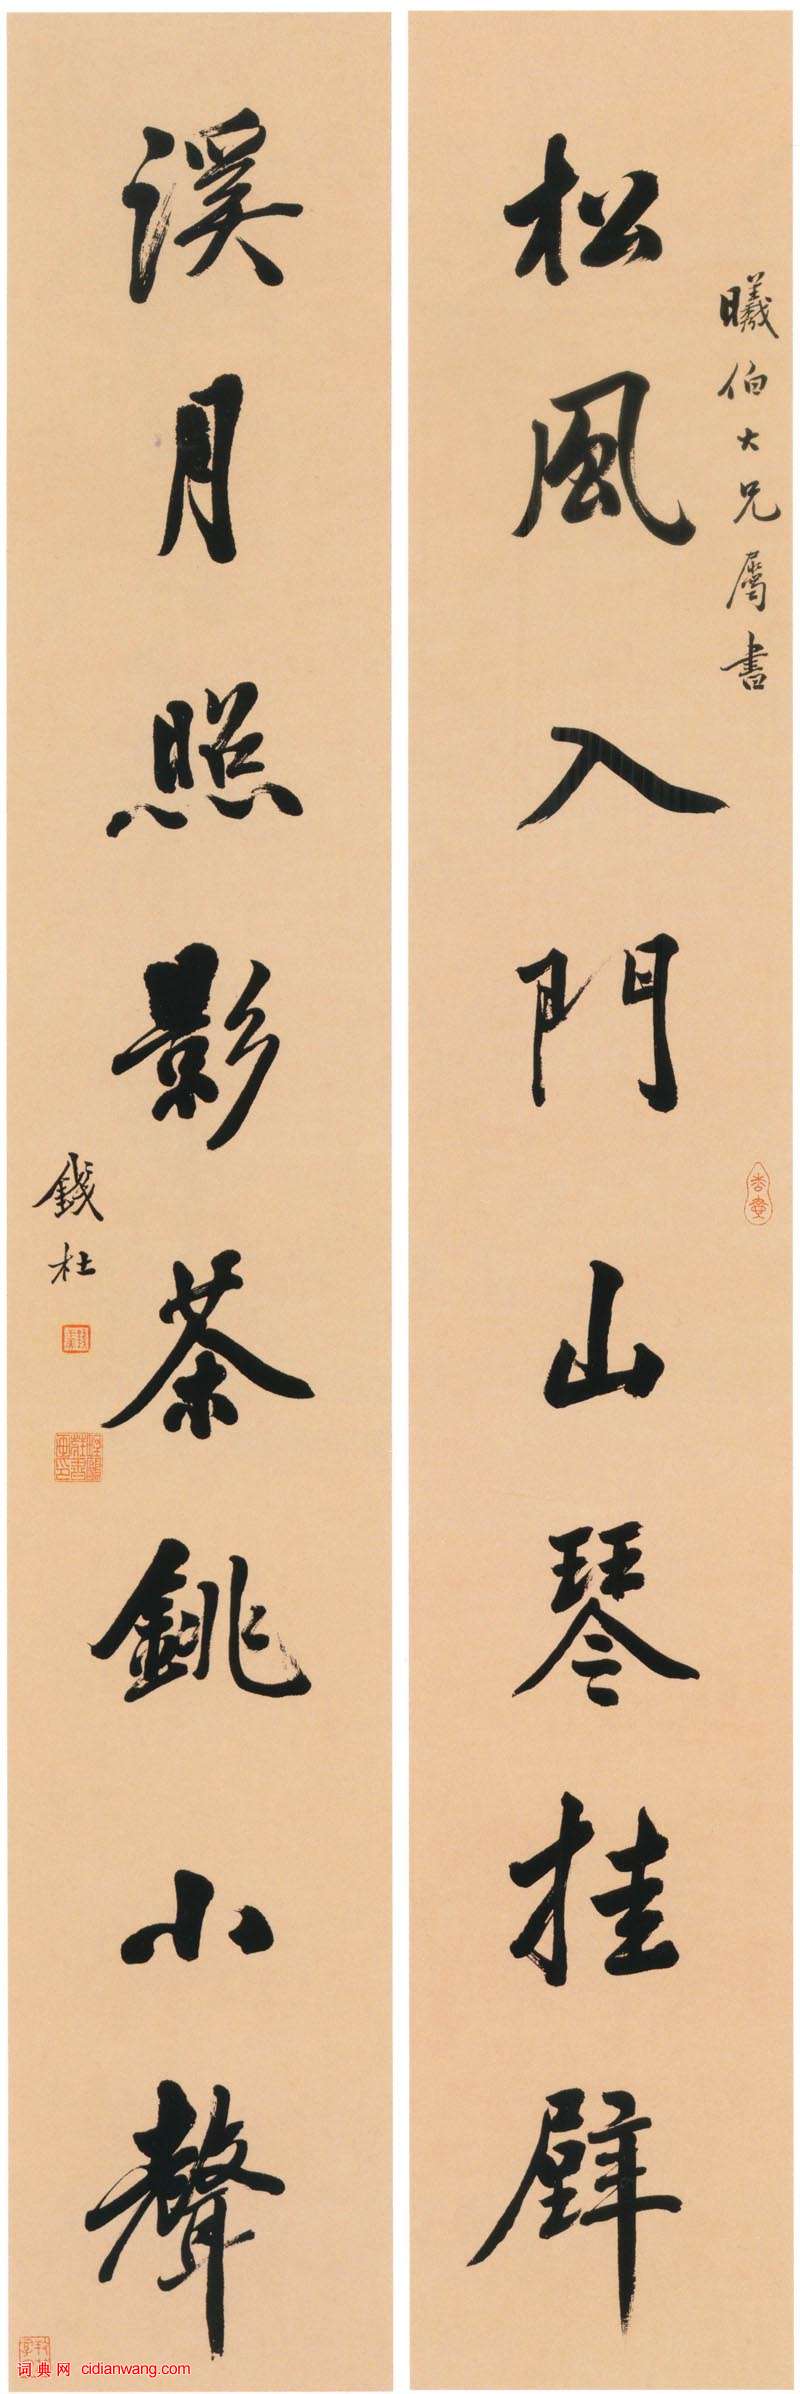 曦伯大兄屬書
松風入門山琴挂壁
溪月照影茶銚小聲
錢杜
词典网 cidianwang.com